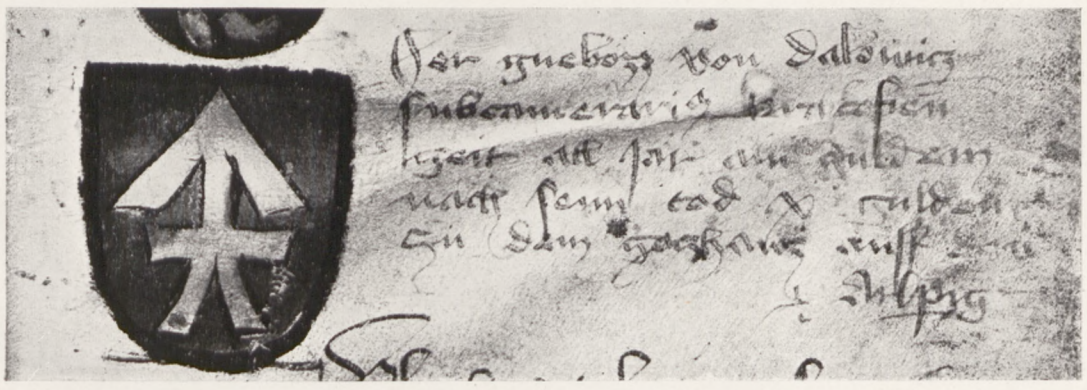 Her gnebosz von dalowicz
subcamerarius
geit all Jar ain gulden
nach seim tod x gulden
Zu dem goczhaus auff dem
Arlperg